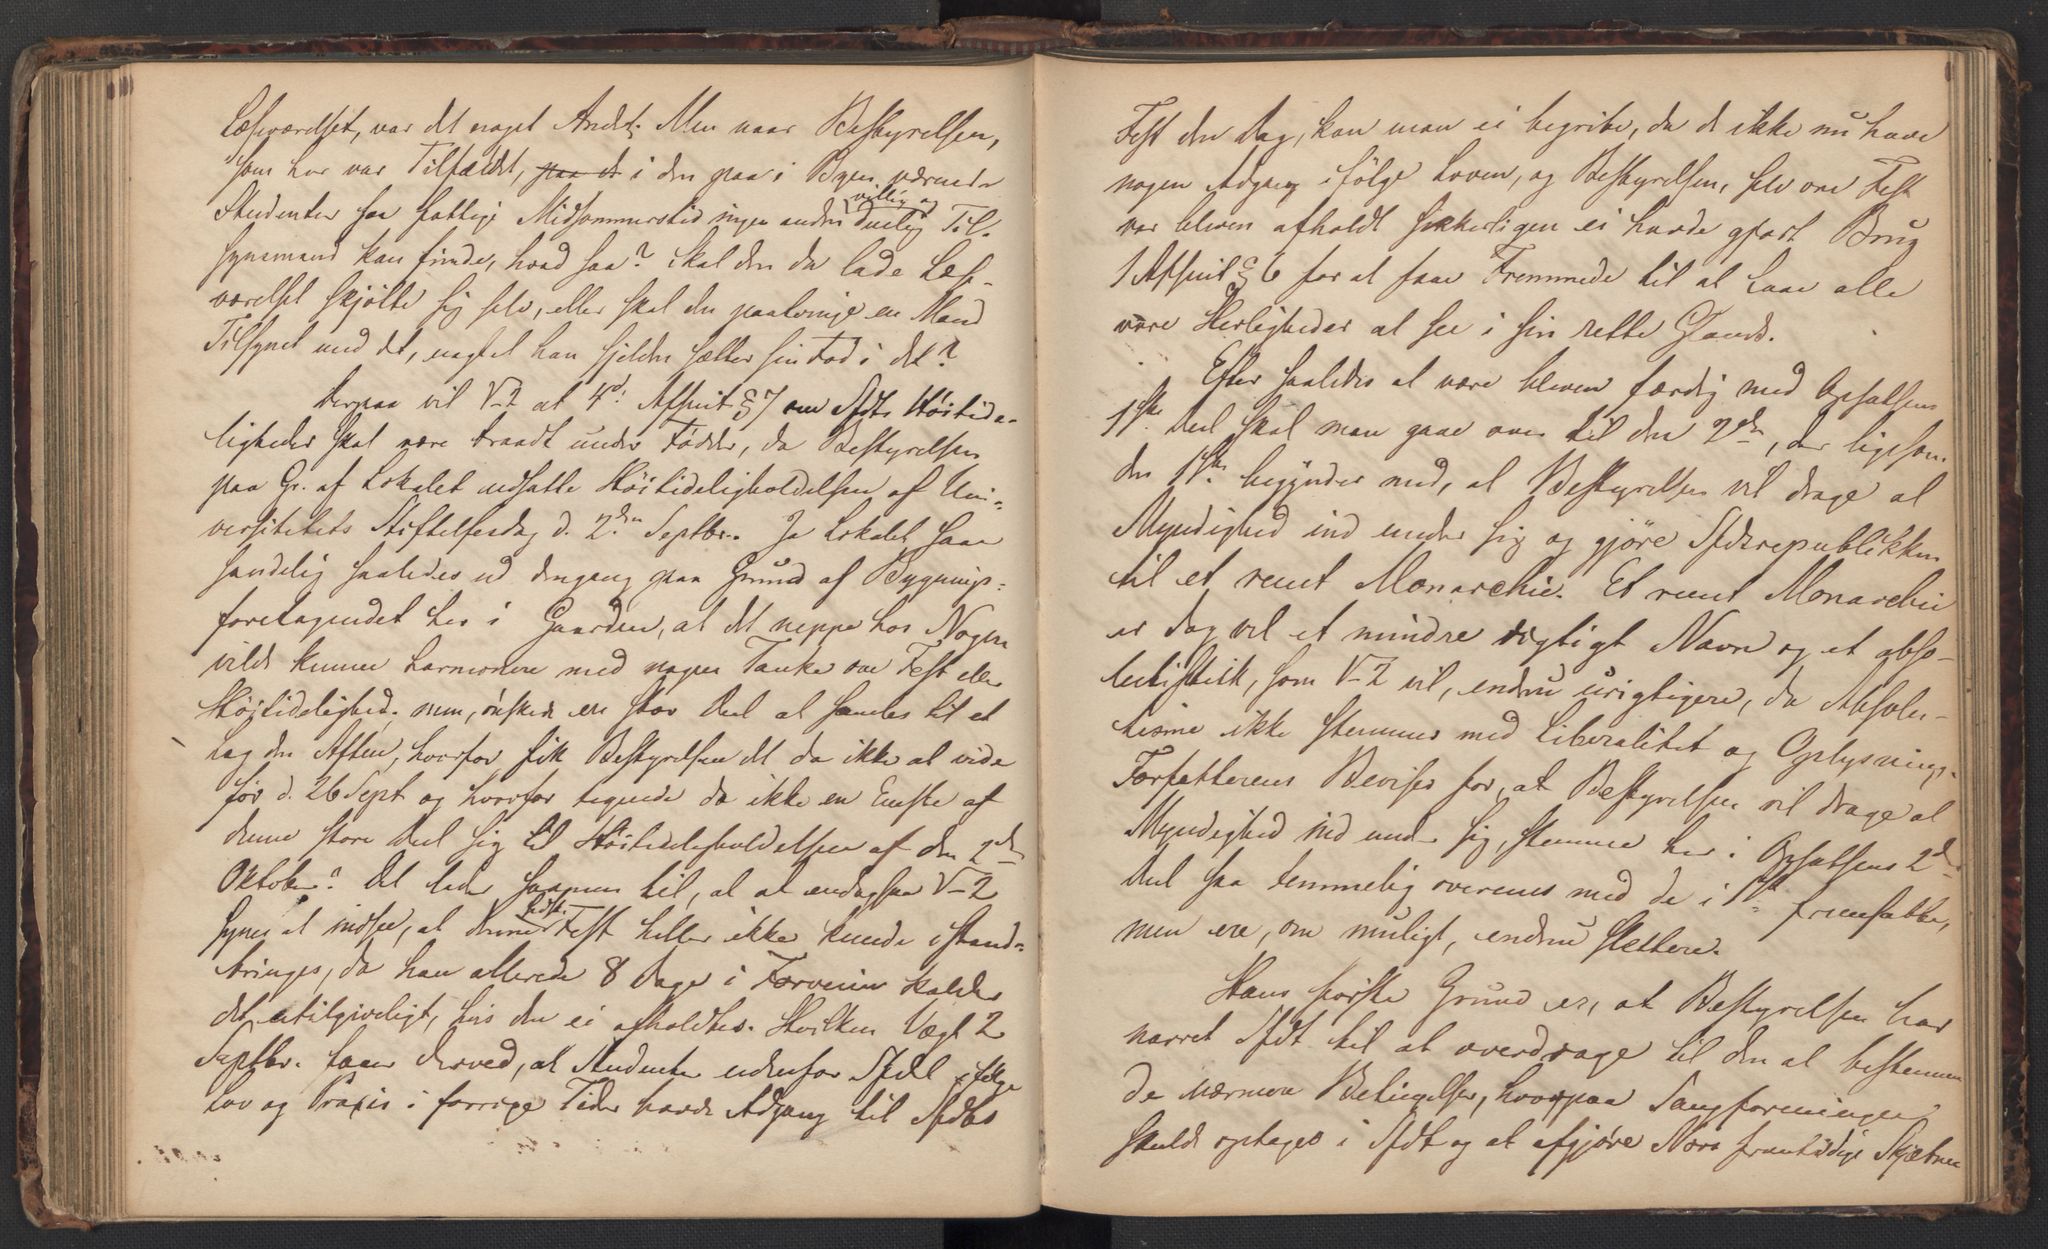 Læseværelset, var det noget Andet. Men naar Bestyrelsen,
som her var Tilfældet, paa d i den paa i Byen værende
Studenter saa fattige Midsommerstid ingen anden villig og duelig Til-
synsmand kan finde, hvad saa? skal den da lade Læse-
værelset skjøtte sig selv, eller skal den paatvinge en Mand
Tilsynet med det, uagtet han sjelden sætter sin Fod i det?
Derpaa vil V-2 at 4d. Afsnit § 7 om Sfdts Høitide-
ligheder skal være traadt under Fødder, da Bestyrelsen
paa Gr. af Lokalet udsatte Høitideligholdelsen af Uni-
versitetets Stiftelsesdag d. 2den Septbr. Ja Lokalet saae
sandelig saaledes ud dengang paa Grund af Bygnings-
foretagendet her i Gaarden, at det neppe hos Nogen
vilde kunne harmonere med nogen Tanke om Fest eller
Høitidelighed. men, ønskede en stor Deel at samles til et
Lag den Aften, hvorfor fik Bestyrelsen det da ikke at vide
før d. 26 Sept og hvorfor tegnede da ikke en Eneste af
denne store Deel sig til Høitideligholdelsen af den 2den
Oktober? Det lader saamen til, at at endogsaa V-2
synes at indsee, at denne sidste Fest heller ikke kunde istand-
bringes, da han allerede 8 Dage i Forveien kalder
det utilgiveligt, hvis den ei afholdtes. Hvilken Vægt 2
Septbr. faaer derved, at Studenter udenfor Sfdt ifølge
Lov og Praxis i forrige Tider havde Adgang til Sfdts
Fest den Dag, kan man ei begribe, da de ikke nu have
nogen Adgang ifølge Loven, og Bestyrelsen, selv om Fest
var bleven afholdt sikkerligen ei havde gjort Brug
1 Afsnit § 6 for at faae Fremmede til at Laae alle
vore Herligheder at see i sin rette Glands.
Efter saaledes at være bleven færdig med Opsatsens
1ste Deel skal man gaae over til den 2den, der ligesom
den 1ste begynder med, at Bestyrelsen vil drage al
Myndighed ind under sig og gjøre Sfdsrepublikken
til et reent Monarchie. Et reent Monarchie
er dog vel et mindre rigtigt Navn og et abso-
lutistisk, som V-2 vil, endnu urigtigere, da Absolu-
tisme ikke stemmer med Liberalitet og Oplysning.
Forfatterens Beviser for, at Bestyrelsen vil drage al
Myndighed ind under sig, stemme her i Opsatsens 2den
Deel saa temmelig overeens med de i 1ste fremsatte,
men ere, om muligt, endnu slettere.
Hans første Grund er, at Bestyrelsen har
narret Sfdt til at overdrage til den at bestemme
de nærmere Betingelser, hvorpaa Sangforeningen
skulde optages i Sfdt og at afgjøre Nors fremtidige Skjæbne